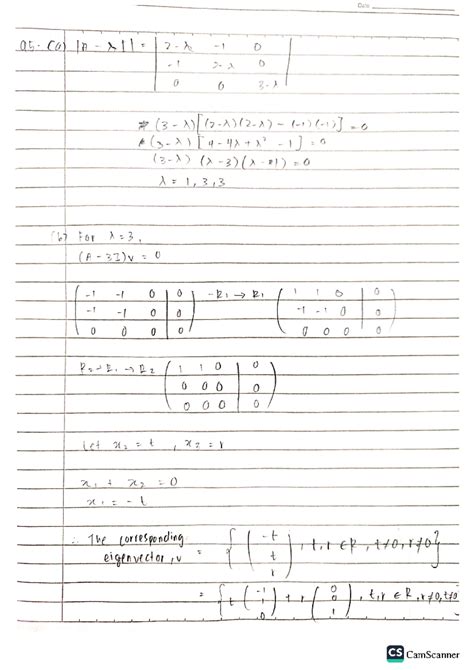 Date
Q5. (a) |A - λI| = | 2-λ -1 0 |
| -1 2-λ 0 |
| 0 0 3-λ |
(3-λ)[(2-λ)(2-λ) - (-1)(-1)] = 0
(3-λ)[4-4λ+λ² - 1] = 0
(3-λ)(λ-3)(λ-1) = 0
λ = 1, 3, 3
(b) For λ = 3,
(A - 3I)v = 0
( -1 -1 0 | 0 ) -R₁ → R₁ ( 1 1 0 | 0 )
( -1 -1 0 | 0 ) ( -1 -1 0 | 0 )
( 0 0 0 | 0 ) ( 0 0 0 | 0 )
( 1 1 0 | 0 )
( 0 0 0 | 0 )
( 0 0 0 | 0 )
Let x₂ = t , x₃ = r
x₁ + x₂ = 0
x₁ = -t
∴ The corresponding eigenvector, v = { ( -t t r ) , t, r ∈ R, t≠0, r≠0 }
= { t ( -1 1 0 ) + r ( 0 0 1 ) , t, r ∈ R, r≠0, t≠0
CS CamScanner